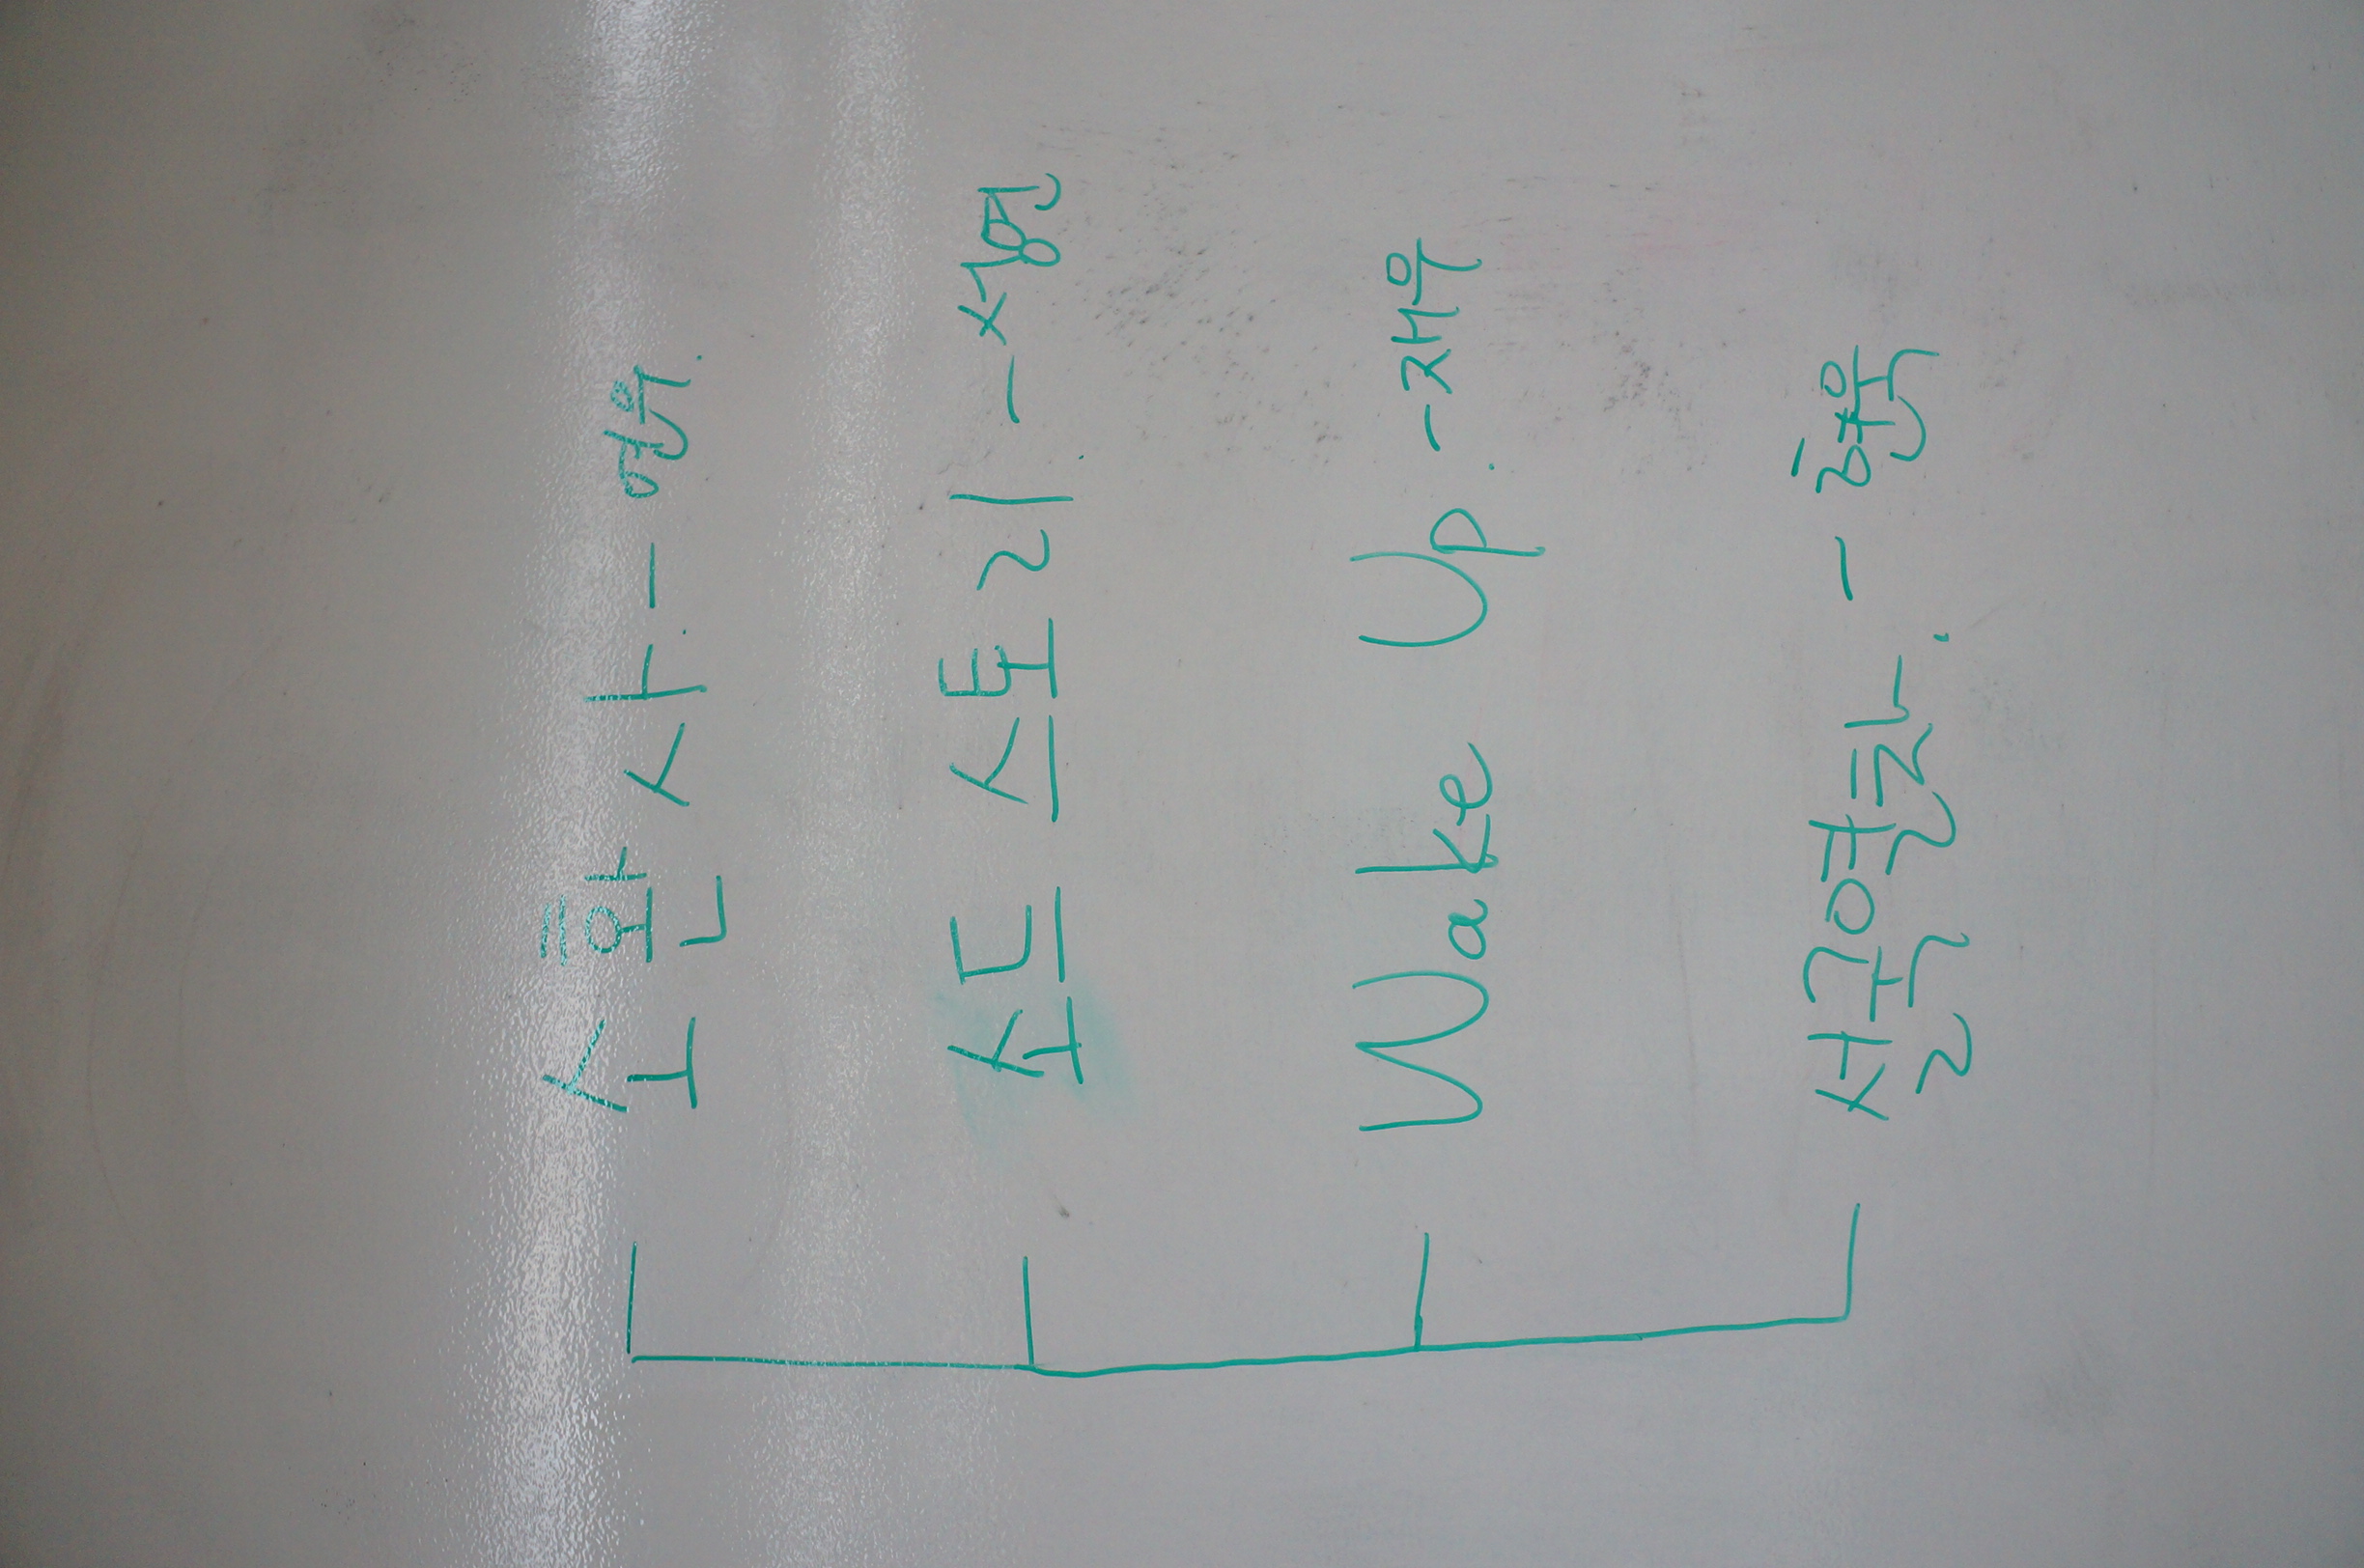 소환사. - 연우.
소드 스토리. - 성연
Wake Up. - 재우
설국열차. - 현욱